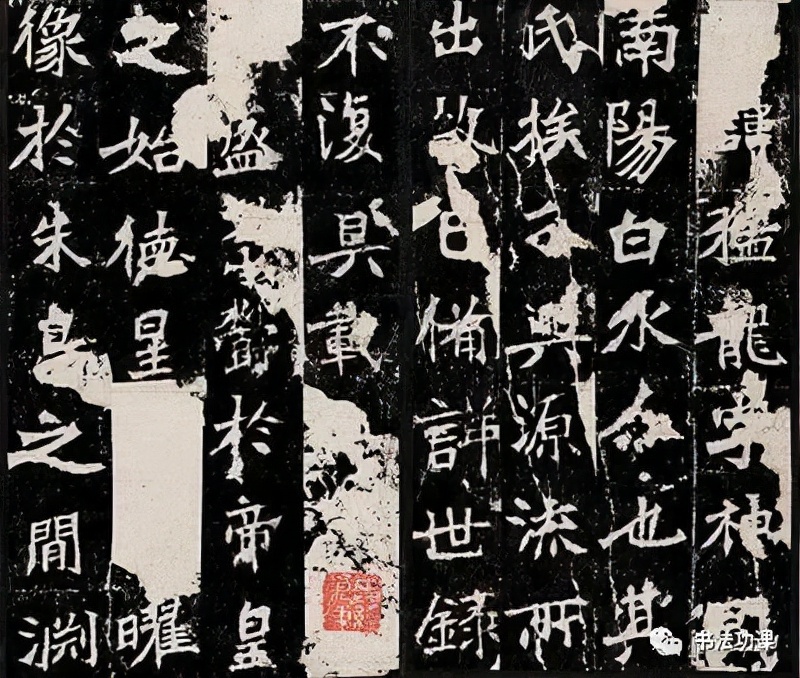 諱猛龍字神囧
南陽白水人也其
氏族分興源流所
出故已備詳世錄
不復具載
盛於帝皇
之始德星曜
像於朱鳥之間渊
书法功课